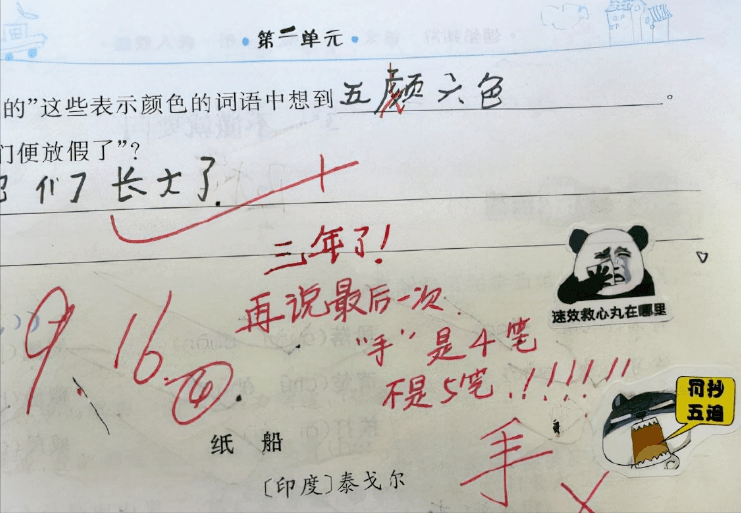 第二单元
的”这些表示颜色的词语中想到五颜六色。
们便放假了”?
们了长大了.
三年了!
再说最后一次.
速效救心丸在哪里
9.16.④.
“手”是4笔
不是5笔.!!!!!!
罚抄
五遍
纸船
手
〔印度〕泰戈尔